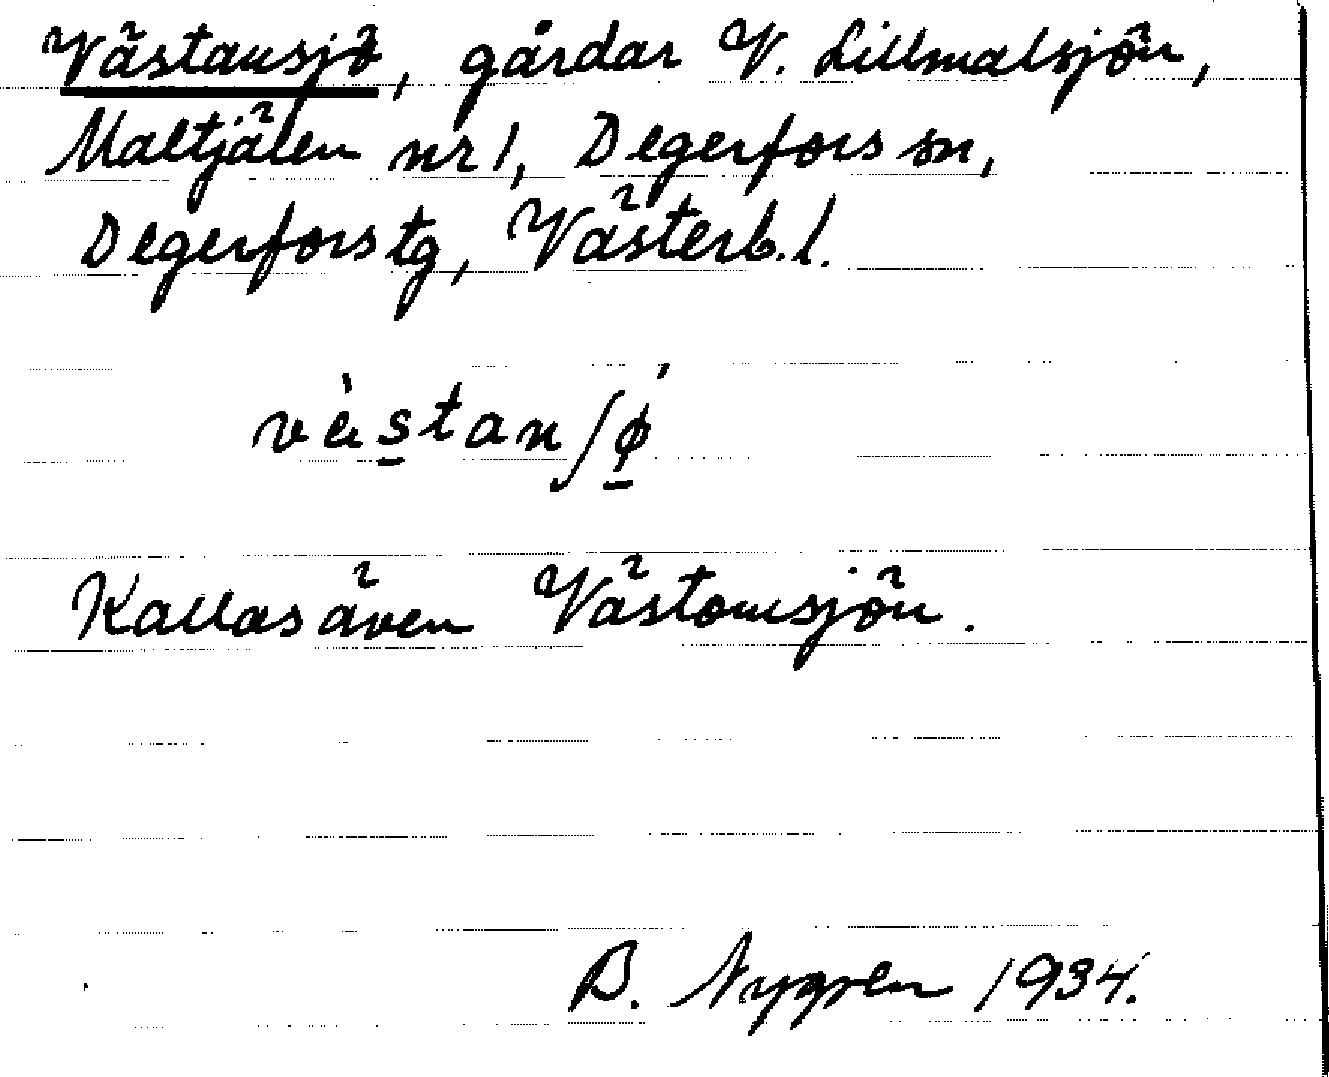 Västansjö, gårdar V. Lillmalsjön,
Maltjälen nr 1, Degerfors sn,
Degerfors tg, Västerb. l.
vàstanʃǿ̱
Kallas även Västansjön.
B. Nygren 1934.